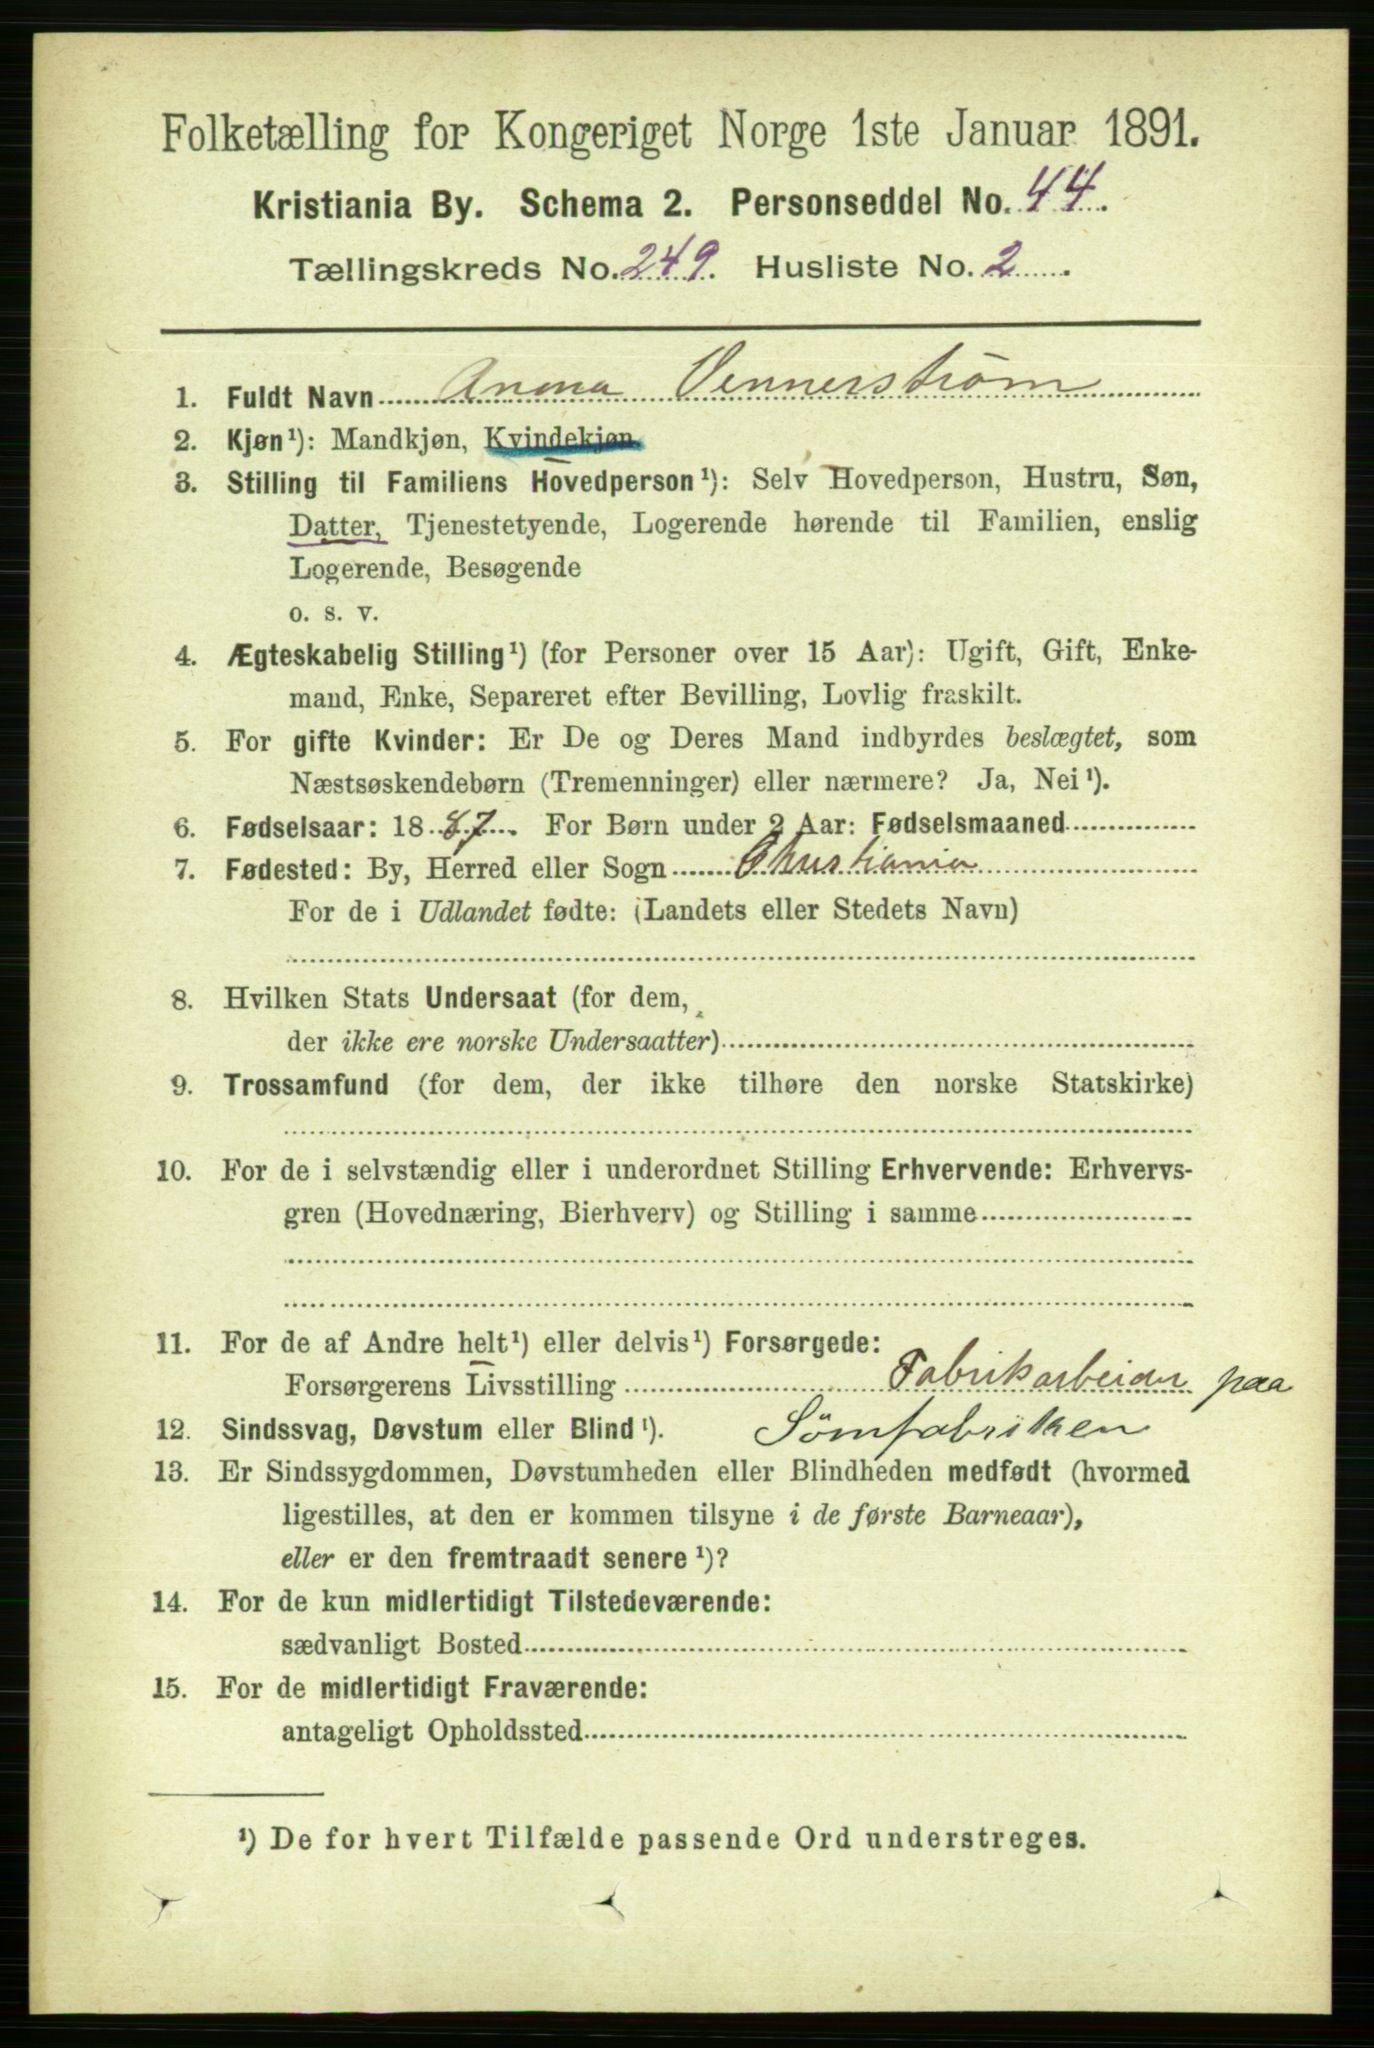 Folketælling for Kongeriget Norge 1ste Januar 1891.
Kristiania By. Schema 2. Personseddel No. 44.
Tællingskreds No. 249. Husliste No. 2.
1. Fuldt Navn Anna Vennerström
2. Kjøn¹): Mandkjøn, Kvindekjøn.
3. Stilling til Familiens Hovedperson¹): Selv Hovedperson, Hustru, Søn,
Datter, Tjenestetyende, Logerende hørende til Familien, enslig
Logerende, Besøgende
o. s. v.
4. Ægteskabelig Stilling¹) (for Personer over 15 Aar): Ugift, Gift, Enke-
mand, Enke, Separeret efter Bevilling, Lovlig fraskilt.
5. For gifte Kvinder: Er De og Deres Mand indbyrdes beslægtet, som
Næstsøskendebørn (Tremenninger) eller nærmere? Ja, Nei¹).
6. Fødselsaar: 1887. For Børn under 2 Aar: Fødselsmaaned
7. Fødested: By, Herred eller Sogn Christiania
For de i Udlandet fødte: (Landets eller Stedets Navn)
8. Hvilken Stats Undersaat (for dem,
der ikke ere norske Undersaatter)
9. Trossamfund (for dem, der ikke tilhøre den norske Statskirke)
10. For de i selvstændig eller i underordnet Stilling Erhvervende: Erhvervs-
gren (Hovednæring, Bierhverv) og Stilling i samme
11. For de af Andre helt¹) eller delvis¹) Forsørgede:
Forsørgerens Livsstilling Fabrikarbeider paa
12. Sindssvag, Døvstum eller Blind¹). Sömfabriken
13. Er Sindssygdommen, Døvstumheden eller Blindheden medfødt (hvormed
ligestilles, at den er kommen tilsyne i de første Barneaar),
eller er den fremtraadt senere¹)?
14. For de kun midlertidigt Tilstedeværende:
sædvanligt Bosted
15. For de midlertidigt Fraværende:
antageligt Opholdssted
¹) De for hvert Tilfælde passende Ord understreges.